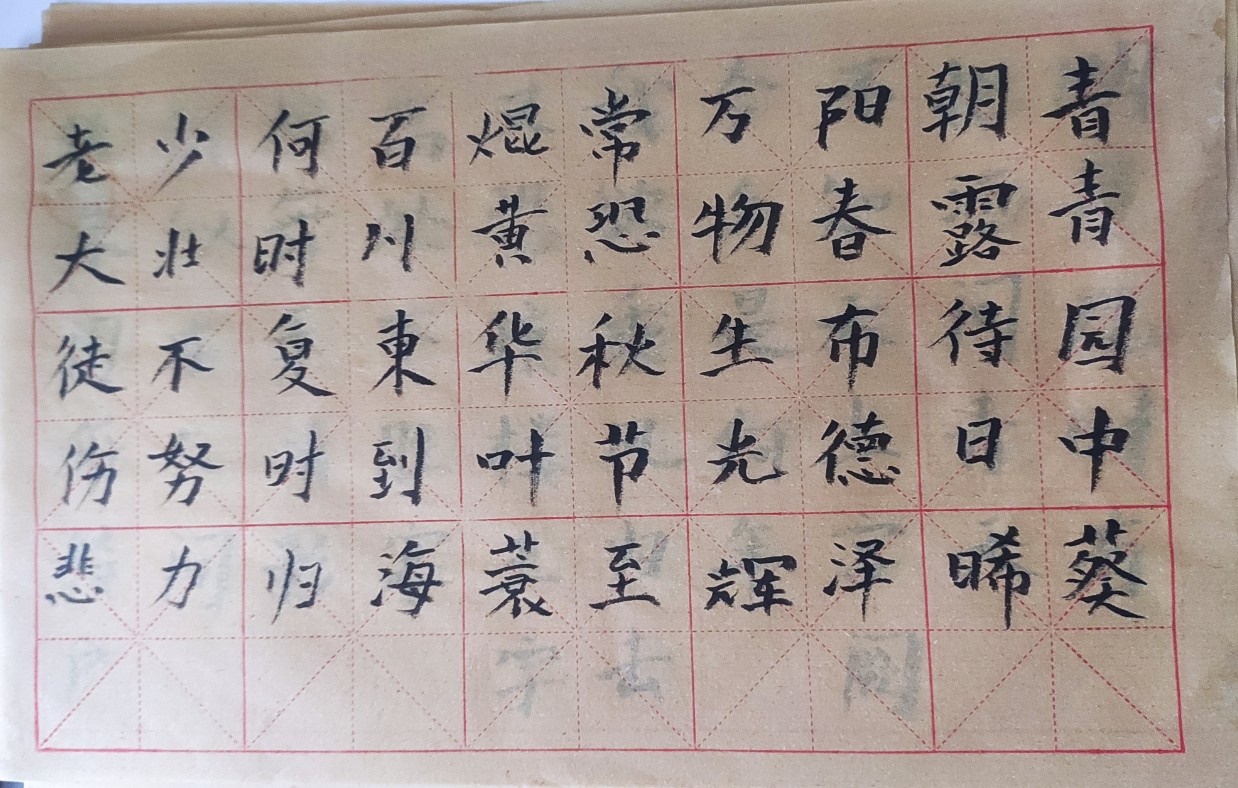 青青园中葵
朝露待日晞
阳春布德泽
万物生光辉
常恐秋节至
焜黄华叶蓑
百川東到海
何时复时归
少壮不努力
老大徒伤悲